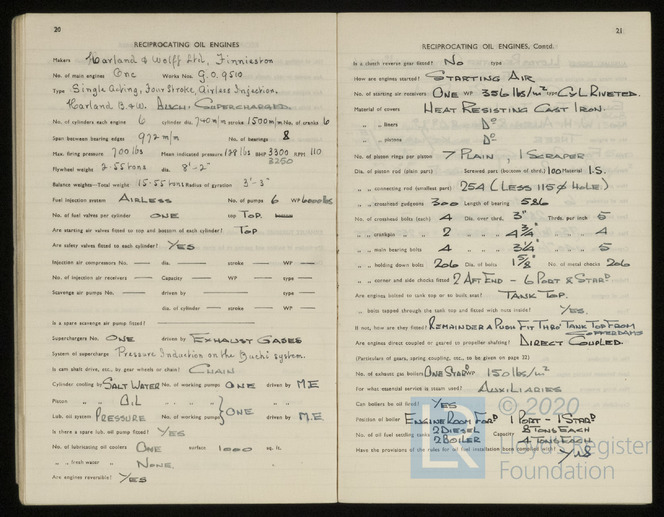 20
RECIPROCATING OIL ENGINES
Makers Harland & Wolff Ltd, Finnieston
No. of main engines One Works Nos. G.O. 9510
Type Single Acting, Four Stroke, Airless Injection,
Harland B.&W. Buchi Supercharged.
No. of cylinders each engine 6 cylinder dia. 740 m/m stroke 1500 m/m No. of cranks 6
Span between bearing edges 972 m/m No. of bearings 8
Max. firing pressure 700 lbs Mean indicated pressure 128 lbs BHP 3300 RPM 110
3250
Flywheel weight 2.55 tons dia. 8'-2"
Balance weights—Total weight 15.55 tons Radius of gyration 3'-3"
Fuel injection system AIRLESS No. of pumps 6 WP 6000 lbs
No. of fuel valves per cylinder ONE top TOP.
Are starting air valves fitted to top and bottom of each cylinder? TOP
Are safety valves fitted to each cylinder? YES
Injection air compressors No. — dia. — stroke — WP — type —
No. of injection air receivers — Capacity — WP — type —
Scavenge air pumps No. — driven by — type —
dia. of cylinder — stroke — WP —
Is a spare scavenge air pump fitted? —
Superchargers No. ONE driven by EXHAUST GASES
System of supercharge Pressure Induction on the Buchi system.
Is cam shaft drive, etc., by gear wheels or chain? CHAIN
Cylinder cooling by SALT WATER No. of working pumps ONE driven by M.E
Piston " " OIL " " " " "
Lub. oil system PRESSURE No. of working pumps } ONE driven by M.E.
Is there a spare lub. oil pump fitted? YES
No. of lubricating oil coolers ONE surface 1000 sq. ft.
" " fresh water " NONE. " "
Are engines reversible? YES
21
RECIPROCATING OIL ENGINES, Contd.
Is a clutch reverse gear fitted? No type
How are engines started? STARTING AIR
No. of starting air receivers ONE WP 356 lbs/in² type CYL RIVETED.
Material of covers HEAT RESISTING CAST IRON.
" " liners Dº
" " pistons Dº
No. of piston rings per piston 7 PLAIN, 1 SCRAPER
Dia. of piston rod (plain part) Screwed part (bottom of thrd.) 100 Material I.S.
" " connecting rod (smallest part) 254 (LESS 115 Ø HOLE)
" " crosshead gudgeons 300 Length of bearing 586
No. of crosshead bolts (each) 4 Dia. over thrd. 3" Thrds. per inch 5
" " crankpin " " 2 " " " 4¾" " " " 4
" " main bearing bolts 4 " " " 3¼" " " " 5
" " holding down bolts 206 Dia. of bolts 1⅝" No. of metal chocks 206
" " corner and side chocks fitted 2 AFT END - 6 PORT & STARD
Are engines bolted to tank top or to built seat? TANK TOP.
" bolts tapped through the tank top and fitted with nuts inside? YES.
If not, how are they fitted? REMAINDER A PUSH FIT THRO' TANK TOP FROM
COFFERDAMS
Are engines direct coupled or geared to propeller shafting? DIRECT COUPLED.
(Particulars of gears, spring coupling, etc., to be given on page 22)
No. of exhaust gas boilers ONE STARD WP 150 lbs/in²
For what essential service is steam used? AUXILIARIES
Can boilers be oil fired? YES
Position of boiler ENGINE ROOM FORD 1 PORT - 1 STARD
No. of oil fuel settling tanks 2 DIESEL Capacity 8 TONS EACH
2 BOILER 4 TONS EACH
Have the provisions of the rules for oil fuel installation been complied with? Yes
LR
© 2020
Lloyd's Register
Foundation